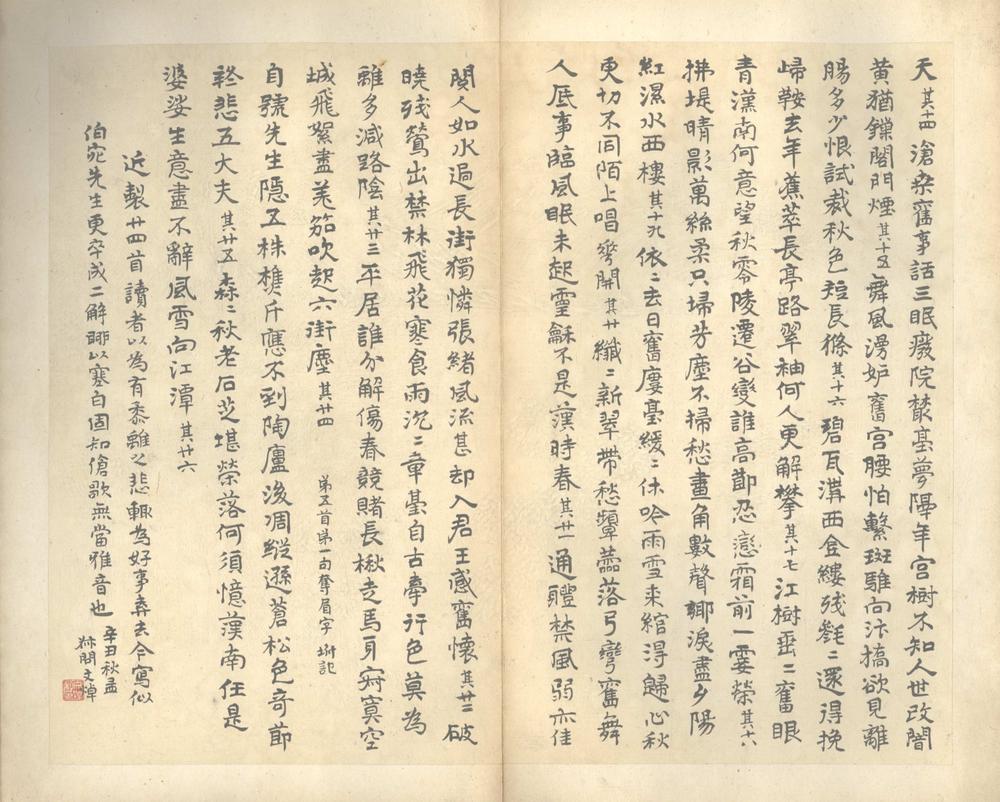 天 其十四 滄桑舊事話三眠廢院叢臺夢隔年宮樹不知人世改闇
黃猶鏁閤門煙 其十五 舞風漫妒舊宮腰怕繫斑騅向汴橋欲見離
腸多少恨試裁秋色短長條 其十六 碧瓦溝西金縷殘毿〻還得挽
歸鞍去年蕉萃長亭路翠袖何人更解攀 其十七 江樹垂〻舊眼
青漢南何意望秋零陵遷谷變誰高節忍戀霜前一霎榮 其十八
拂堤晴影萬絲柔只埽芳塵不掃愁畫角數聲鄉淚盡夕陽
紅濕水西樓 其十九 依〻去日舊廔臺緩〻休吟雨雪來綰得歸心秋
更切不同陌上唱蕐開 其廿 纖〻新翠帶愁顰蘦落弓彎舊舞
人底事臨風眠未起靈龢不是漢時春 其廿一 通體禁風弱亦佳
閱人如水過長街獨憐張緒風流甚却入君王感舊懷 其廿二 破
曉殘鶯出禁林飛花寒食雨沈〻章臺自古牽行色莫為
離多減路陰 其廿三 平居誰分解傷春競賭長楸走馬身寂寞空
城飛絮盡羌笳吹起六街塵 其廿四 第五首第一句奪眉字 坿記
自號先生隱五株樵斤應不到陶廬後凋縱遜蒼松色奇節
終悲五大夫 其廿五 森〻秋老后芝堪榮落何須憶漢南任是
婆娑生意盡不辭風雪向江潭 其廿六
近製廿四首讀者以為有黍離之悲輒為好事弆去今寫似
伯宛先生更卒成二解聊以塞白固知傖歌無當雅音也
辛丑秋孟
文焯